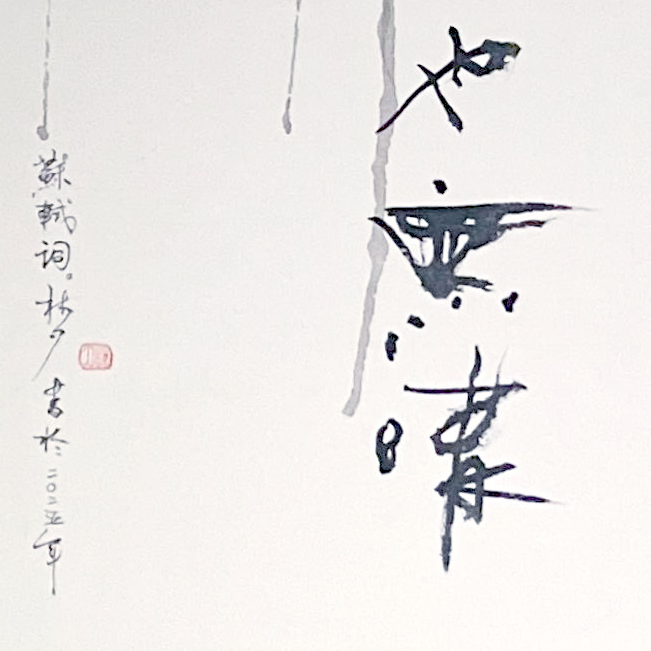 也無晴
蘇軾詞。林夕書於二〇二五年